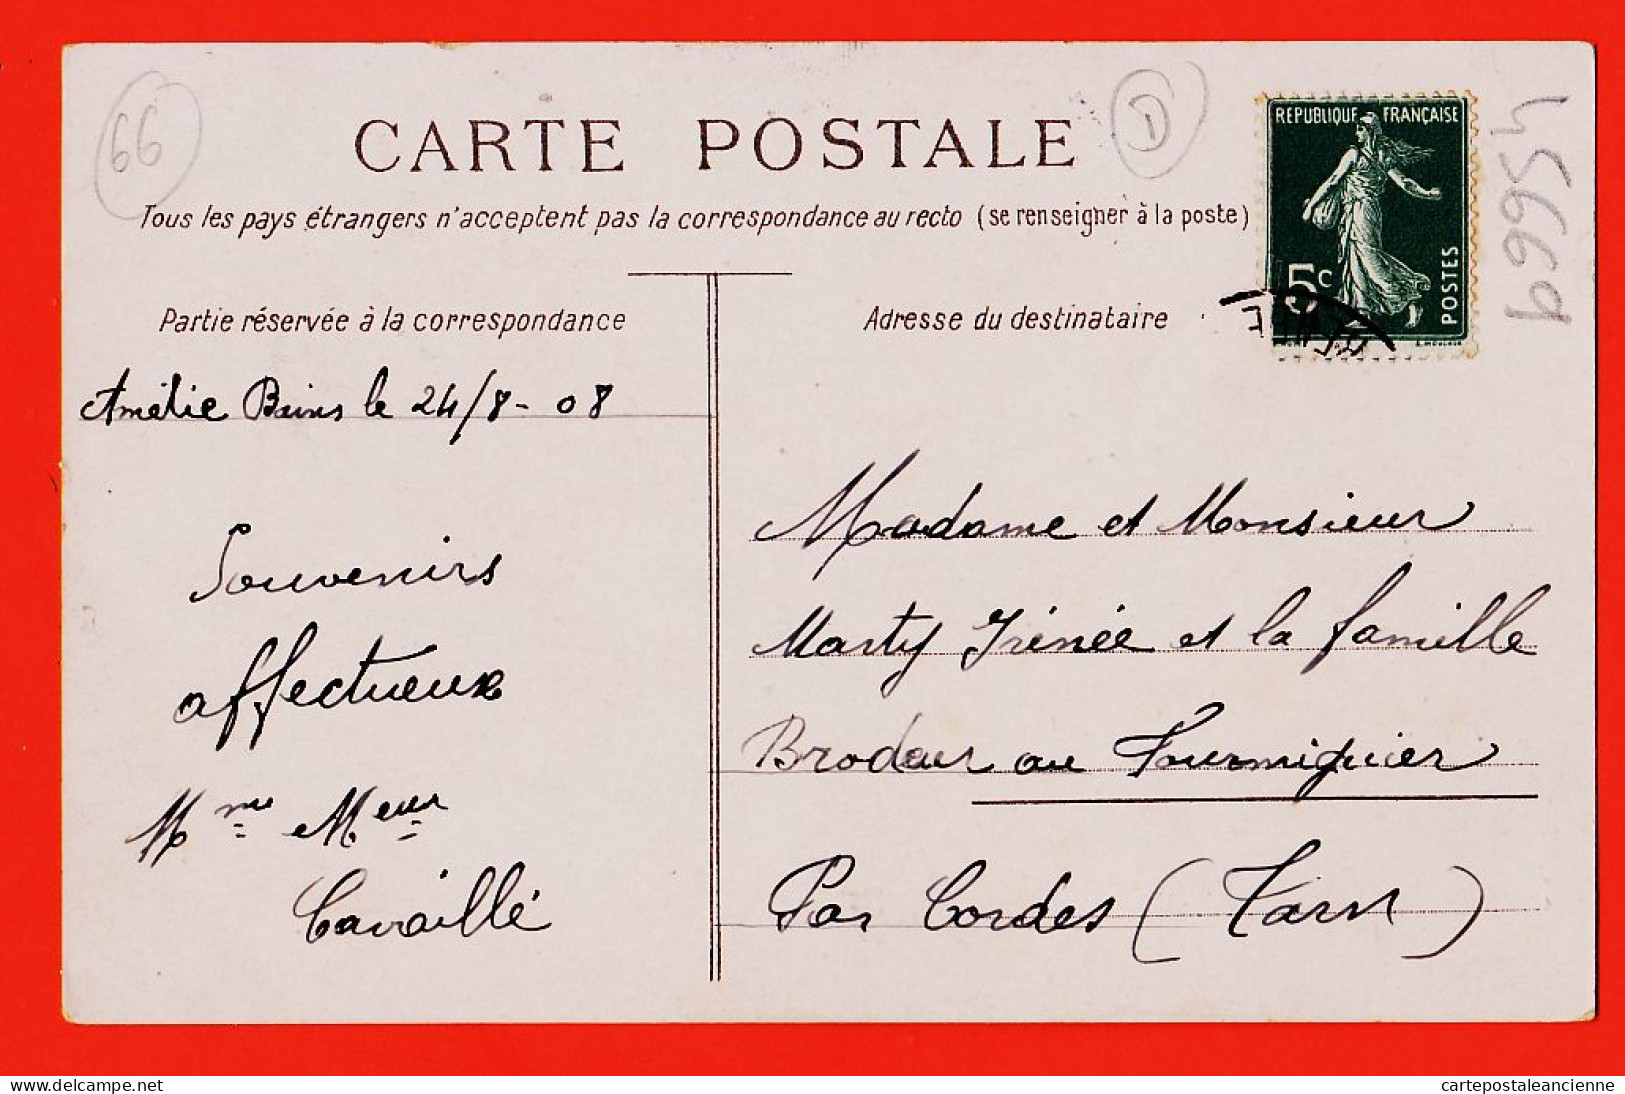 66
CARTE POSTALE
D
Tous les pays étrangers n'acceptent pas la correspondance au recto (se renseigner à la poste)
RÉPUBLIQUE FRANÇAISE
5c
POSTES
45669
Partie réservée à la correspondance
Amélie Bains le 24/8-08
Souvenirs
affectueux
Mme Meur
Cavaillé
Adresse du destinataire
Madame et Monsieur
Marty Irénée et la famille
Brodeur au Fourmiguier
Par Cordes (Tarn)
delcampe.net
cartepostaleancienne